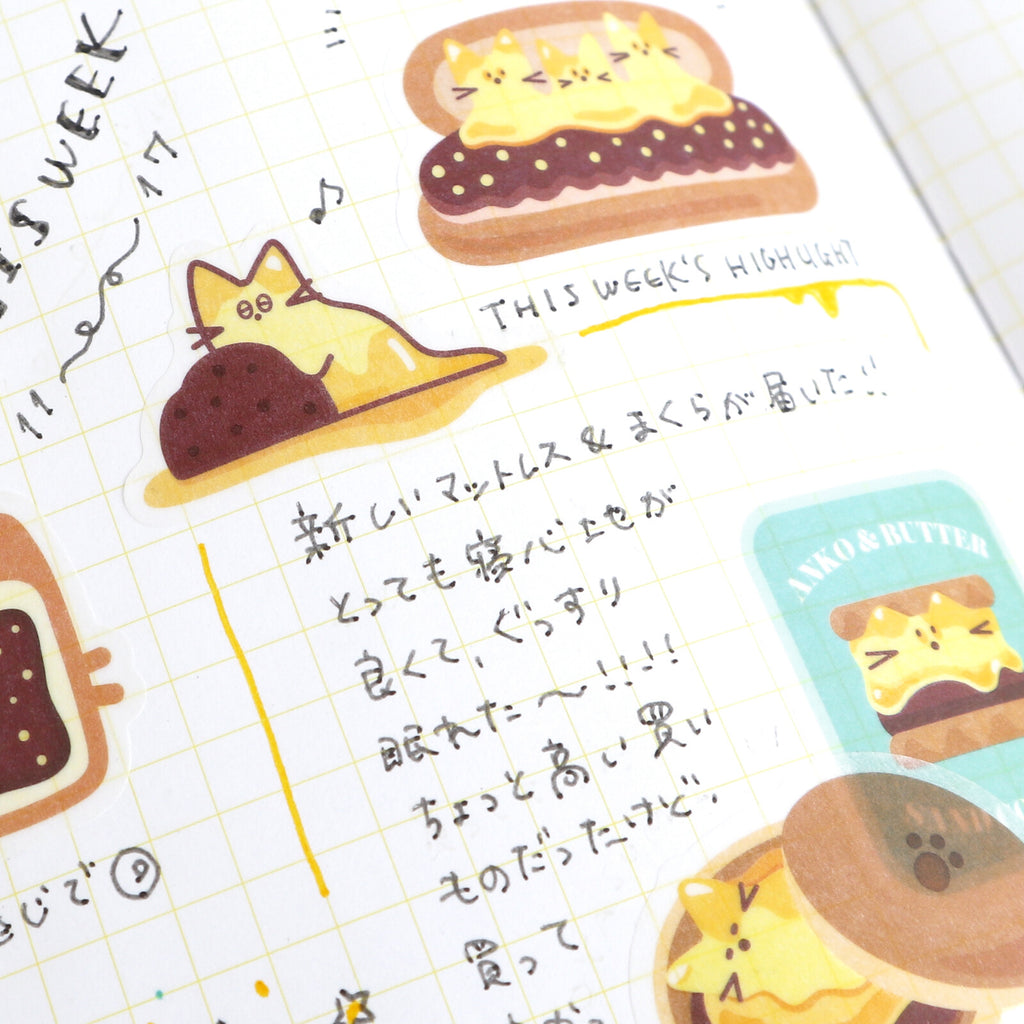 IS WEEK
11
17
THIS WEEK'S HIGHLIGHT
新しいマットレス & まくらが届いた!!
とっても寝心地が
良くて、ぐっすり
眠れた〜!!!!
ちょっと高い買い
ものだったけど、
買って
ANKO & BUTTER
きじで